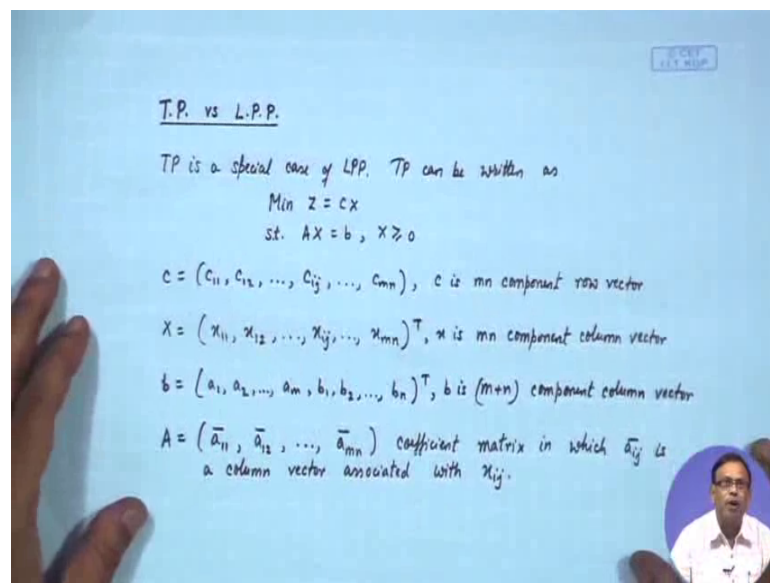 © CET
I.I.T. KGP
T.P. vs L.P.P.
TP is a special case of LPP. TP can be written as
Min Z = cx
s.t. AX = b, X ≥ 0
c = (c₁₁, c₁₂, ..., cᵢⱼ, ..., cₘₙ), c is mn component row vector
X = (x₁₁, x₁₂, ..., xᵢⱼ, ..., xₘₙ)ᵀ, x is mn component column vector
b = (a₁, a₂, ..., aₘ, b₁, b₂, ..., bₙ)ᵀ, b is (m+n) component column vector
A = (a̅₁₁, a̅₁₂, ..., a̅ₘₙ) coefficient matrix in which a̅ᵢⱼ is
a column vector associated with xᵢⱼ.